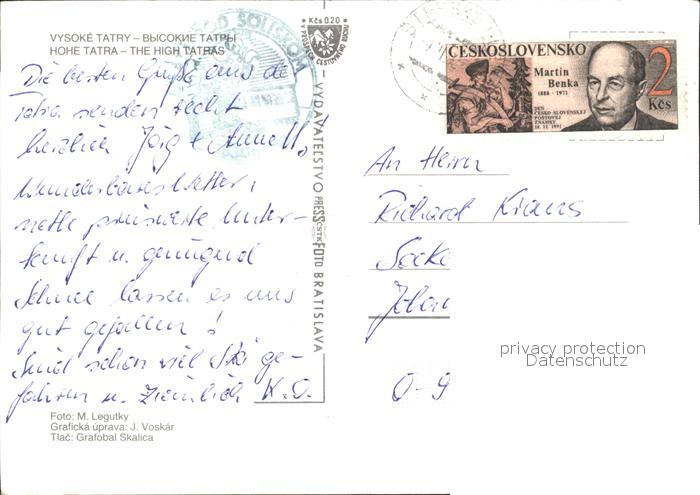 VYSOKÉ TATRY – ВЫСОКИЕ ТАТРЫ
HOHE TATRA – THE HIGH TATRAS
Die besten Grüße aus de
Tatra senden recht
herzlich Jörg + Annett,
Wunderbares Wetter,
nette preiswerte Unter-
kunft u. genügend
Schnee lassen es uns
gut gefallen!
Sind schon viel Ski ge-
fahren u. ziemlich K.O.
Foto: M. Legutky
Grafická úprava: J. Voskár
Tlač: Grafobal Skalica
Kčs 0,20
VYDAVATEĽSTVO PRESSFOTO BRATISLAVA
ČSTK
ČESKOSLOVENSKO
Martin
Benka
1888 - 1971
DEN
ČESKO-SLOVENSKEJ
POŠTOVEJ
ZNÁMKY
18. 12. 1991
2
Kčs
An Herrn
Richard Kraus
O-9
privacy protection
Datenschutz